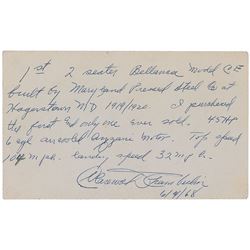 1st 2 seater Bellanca Model CE
built by Maryland Pressed Steel Co at
Hagerstown MD 1919/1920. I purchased
the first and only one ever sold. 45HP
6 cyl aircooled Anzani motor. Top speed
104 mph. Landing speed 32 mph.
Clarence Chamberlin
6/4/68